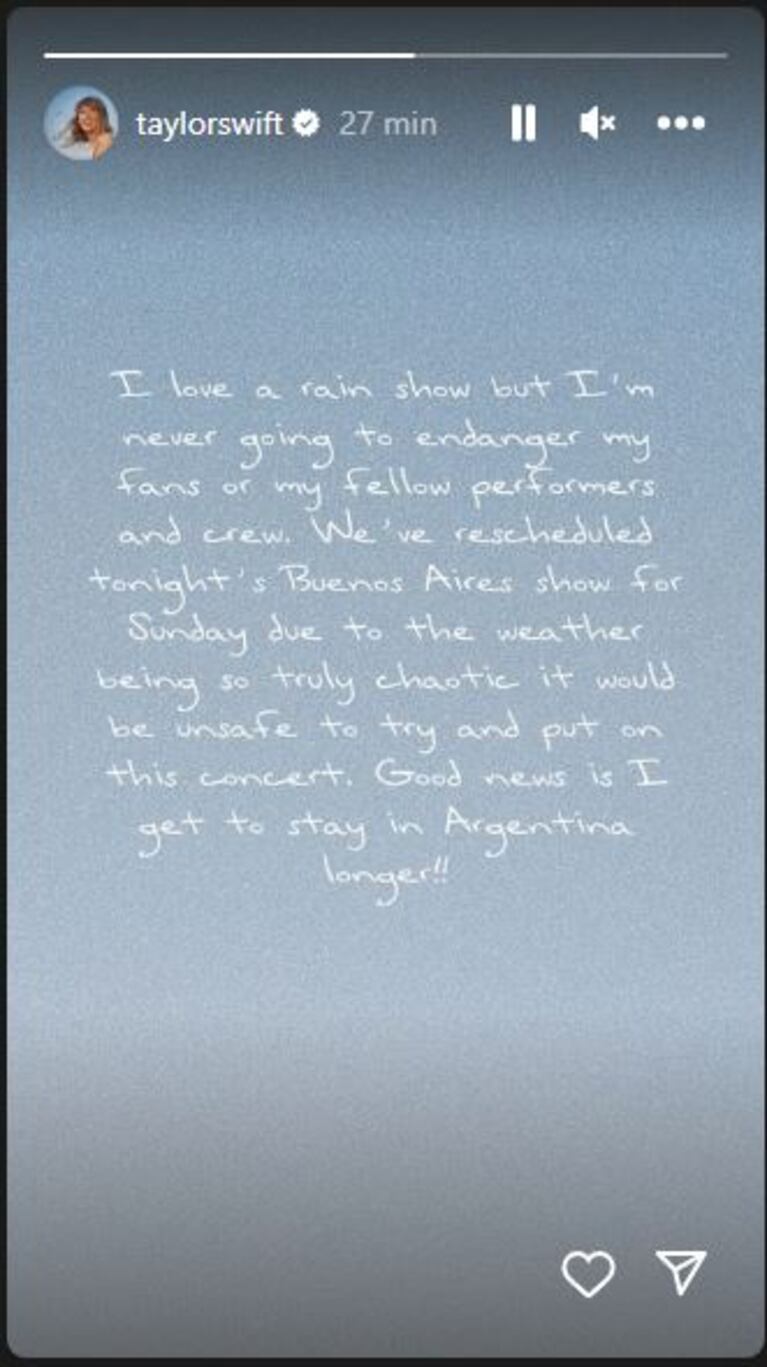 taylorswift 27 min
I love a rain show but I'm
never going to endanger my
fans or my fellow performers
and crew. We've rescheduled
tonight's Buenos Aires show for
Sunday due to the weather
being so truly chaotic it would
be unsafe to try and put on
this concert. Good news is I
get to stay in Argentina
longer!!